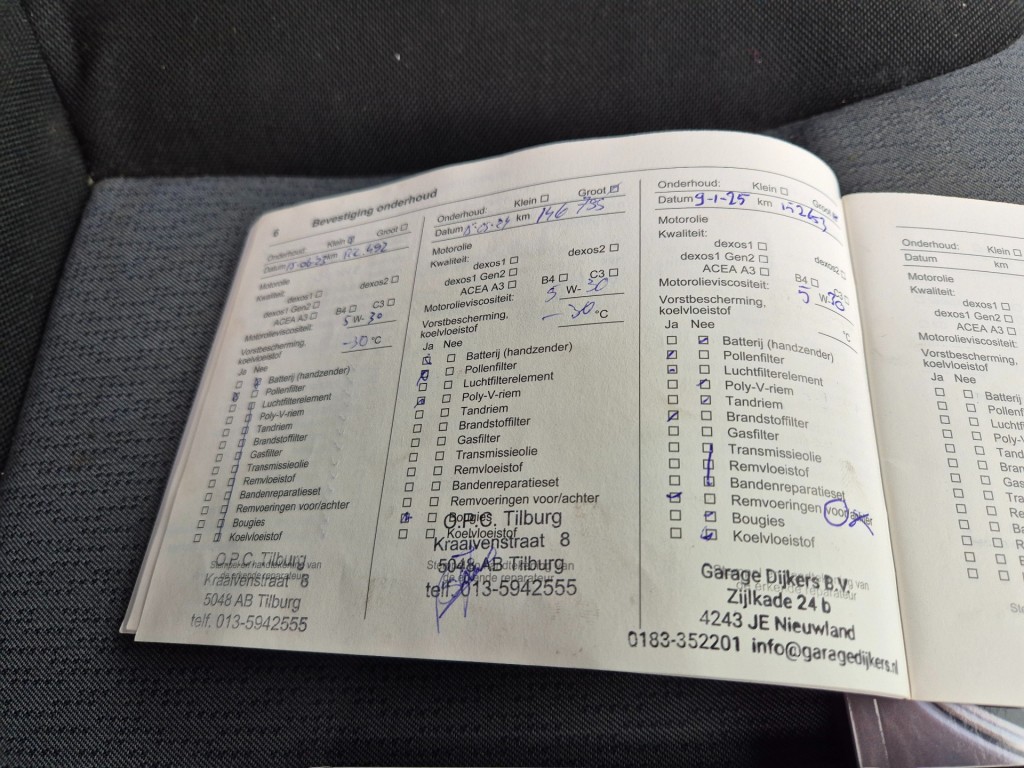 6 Bevestiging onderhoud
Onderhoud: Klein Groot
Datum km
Motorolie
Kwaliteit:
dexos1 dexos2
dexos1 Gen2
ACEA A3 B4 C3
Motorolieviscositeit: 5 W- 30
Vorstbescherming,
koelvloeistof -30 °C
Ja Nee
Batterij (handzender)
Pollenfilter
Luchtfilterelement
Poly-V-riem
Tandriem
Brandstoffilter
Gasfilter
Transmissieolie
Remvloeistof
Bandenreparatieset
Remvoeringen voor/achter
Bougies
Koelvloeistof
O.P.C. Tilburg
Kraaivenstraat 8
5048 AB Tilburg
telf. 013-5942555
Onderhoud: Klein Groot
Datum km 146 795
Motorolie
Kwaliteit:
dexos1 dexos2
dexos1 Gen2
ACEA A3 B4 C3
Motorolieviscositeit: 5 W- 30
Vorstbescherming,
koelvloeistof -30 °C
Ja Nee
Batterij (handzender)
Pollenfilter
Luchtfilterelement
Poly-V-riem
Tandriem
Brandstoffilter
Gasfilter
Transmissieolie
Remvloeistof
Bandenreparatieset
Remvoeringen voor/achter
Bougies
Koelvloeistof
O.P.C. Tilburg
Kraaivenstraat 8
5048 AB Tilburg
telf. 013-5942555
Onderhoud: Klein Groot
Datum 9-1-25 km
Motorolie
Kwaliteit:
dexos1 dexos2
dexos1 Gen2
ACEA A3 B4 C3
Motorolieviscositeit: 5 W- 30
Vorstbescherming,
koelvloeistof °C
Ja Nee
Batterij (handzender)
Pollenfilter
Luchtfilterelement
Poly-V-riem
Tandriem
Brandstoffilter
Gasfilter
Transmissieolie
Remvloeistof
Bandenreparatieset
Remvoeringen voor/achter
Bougies
Koelvloeistof
Garage Dijkers B.V.
Zijlkade 24 b
4243 JE Nieuwland
0183-352201 info@garagedijkers.nl
Onderhoud: Klein
Datum km
Motorolie
Kwaliteit:
dexos1
dexos1 Gen2
ACEA A3
Motorolieviscositeit:
Vorstbescherming,
koelvloeistof
Ja Nee